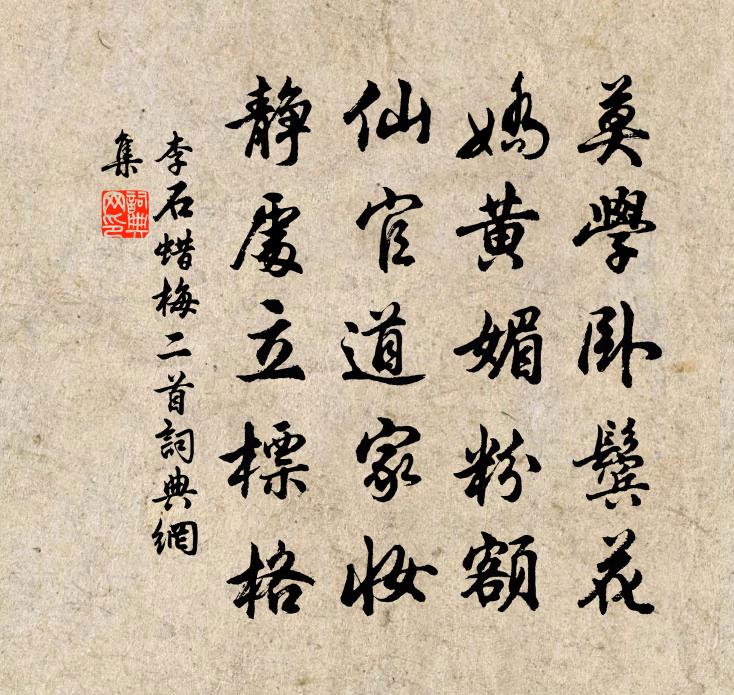 莫學卧鬓花
嬌黄媚粉額
仙官道家妝
静處立標格
李石蜡梅二首詞典網
集
詞典網印